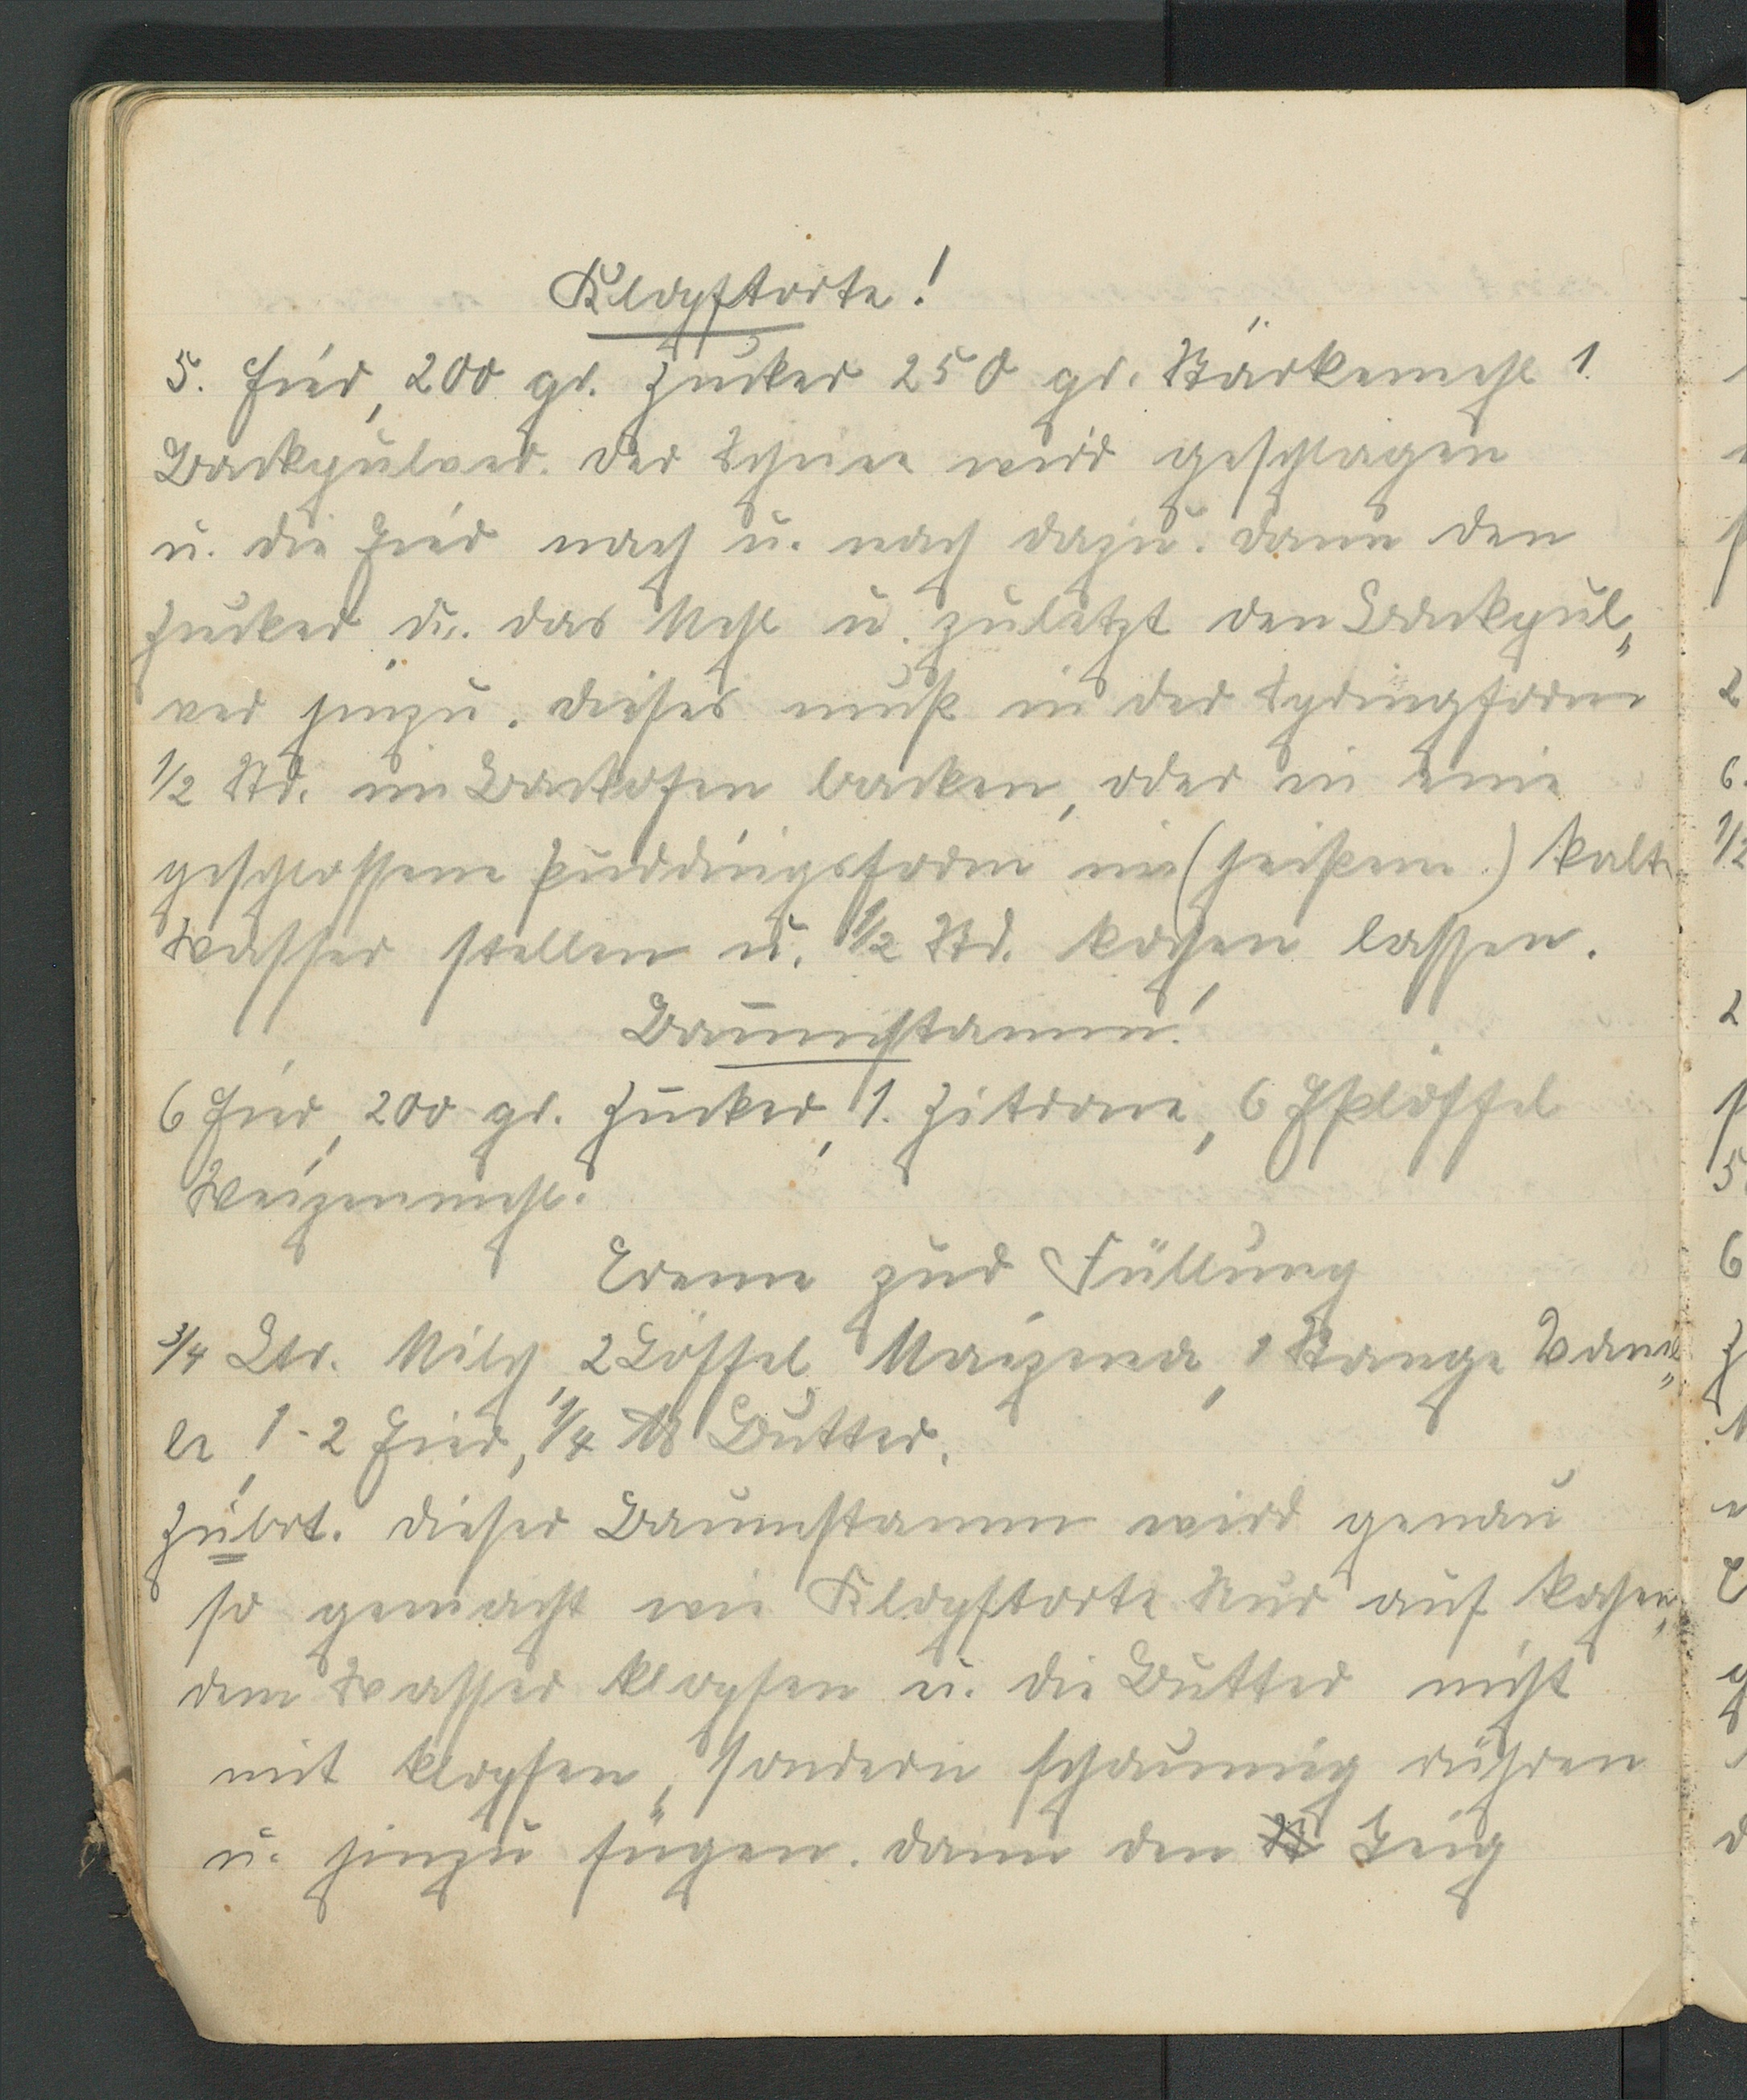 Klopftorte!
5. Eier, 200 gr. Zucker 250 gr. Stärkemehl 1
Backpulver. Der Schnee wird geschlagen
u. die Eier nach u. nach dazu. Dann den
Zucker u. das Mehl u. zuletzt den Backpul„
ver hinzu. Dieses muß in der Springform
1/2 Std. im Backofen backen, oder in eine
geschlossene Puddingsform in (heißem) kalt
Wasser stellen u. 1/2 Std. kochen lassen.
Baumstamm!
6 Eier, 200 gr. Zucker, 1. Zitrone, 6 Eßlöffel
Weizenmehl.
Creme zur Füllung
3/4 Ltr. Milch, 2 Löffel Maizena, 1 Stange Vanil„
le, 1-2 Eier, 1/4 ℔ Butter.
Zubrt. Dieser Baumstamm wird genau
so gemacht wie Klopftorte Nur auf kochen„
dem Wasser klopfen u. die Butter nicht
mit klopfen, sondern schaumig rühren
u. hinzu fügen. Dann den Teig